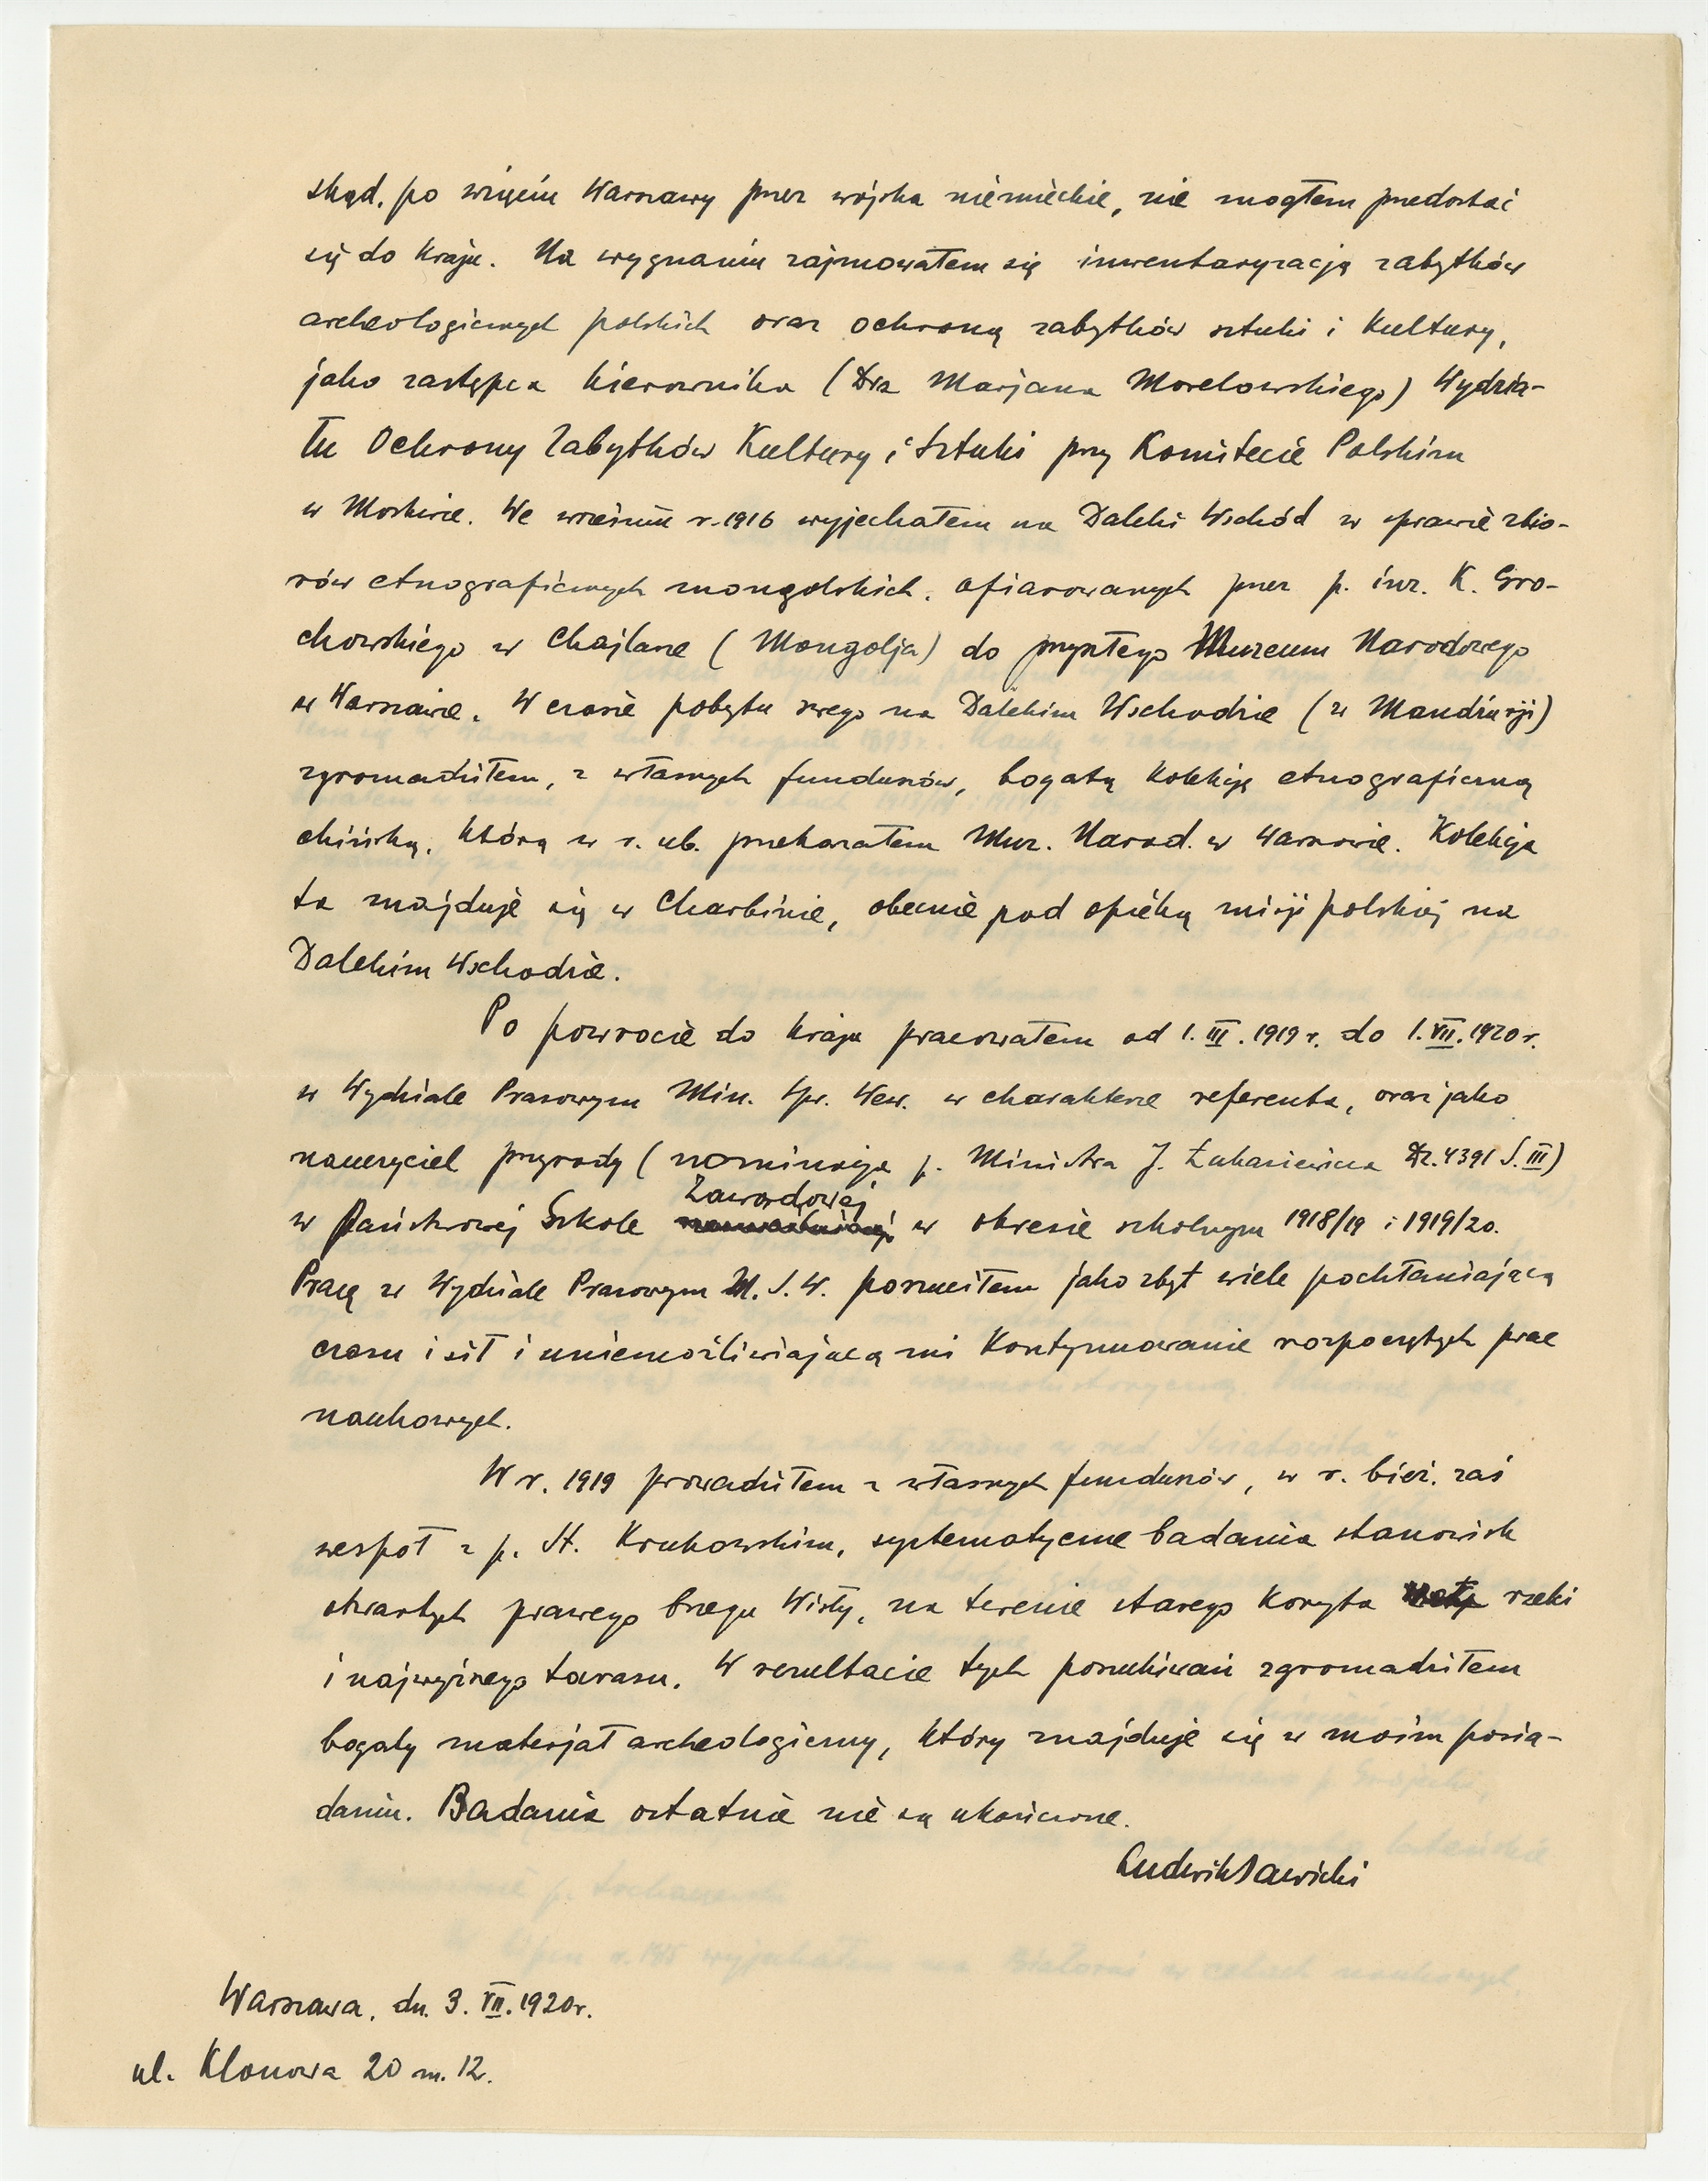 skąd, po wzięciu Warszawy przez wojska niemieckie, nie mogłem przedostać
się do kraju. Na wygnaniu zajmowałem się inwentaryzacją zabytków
archeologicznych polskich oraz ochroną zabytków sztuki i kultury,
jako zastępca kierownika (Dra Marjana Morelowskiego) Wydzia-
łu Ochrony Zabytków Kultury i Sztuki przy Komitecie Polskim
w Moskwie. We wrześniu r. 1916 wyjechałem na Daleki Wschód w sprawie zbio-
rów etnograficznych mongolskich, ofiarowanych przez p. inż. K. Gro-
chowskiego w Chajlarze (Mongolja) do przyszłego Muzeum Narodowego
w Warszawie. W czasie pobytu swego na Dalekim Wschodzie (w Mandżurji)
zgromadziłem, z własnych funduszów, bogatą kolekcję etnograficzną
chińską, którą w r. ub. przekazałem Muz. Narod. w Warszawie. Kolekcja
ta znajduje się w Charbinie, obecnie pod opieką misji polskiej na
Dalekim Wschodzie.
Po powrocie do kraju pracowałem od 1.III.1919 r. do 1.VII.1920 r.
w Wydziale Prasowym Min. Spr. Wew. w charakterze referenta, oraz jako
nauczyciel przyrody (nominacja p. Ministra J. Łukasiewicza Dz. 4391 S.III)
Zawodowej
w Państwowej Szkole w okresie szkolnym 1918/19 i 1919/20.
Pracę w Wydziale Prasowym M.S.W. porzuciłem jako zbyt wiele pochłaniającą
czasu i sił i uniemożliwiającą mi kontynuowanie rozpoczętych prac
naukowych.
W r. 1919 prowadziłem z własnych funduszów, w r. bież. zaś
wespół z p. St. Krukowskim, systematyczne badania stanowisk
otwartych prawego brzegu Wisły, na terenie starego koryta rzeki
i najwyższego tarasu. W rezultacie tych poszukiwań zgromadziłem
bogaty materjał archeologiczny, który znajduje się w moim posia-
daniu. Badania ostatnie nie są ukończone.
Ludwik Sawicki
Warszawa, dn. 3.VII.1920 r.
ul. Klonowa 20 m. 12.